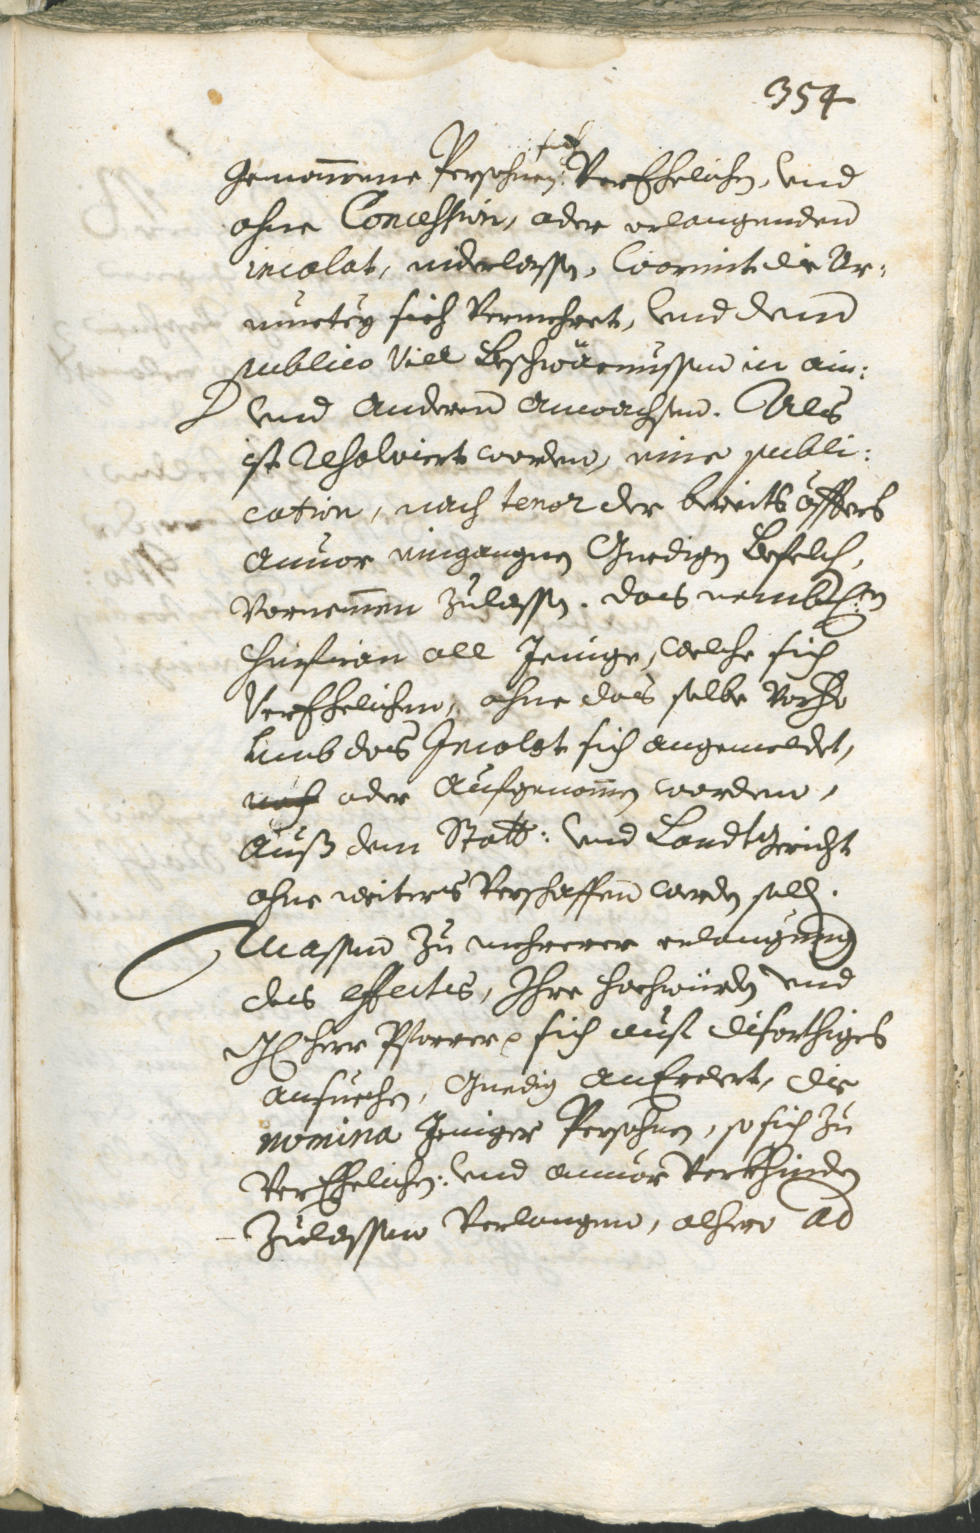 354
genommene Persohnen sich VerEhelichen, vnd
ohne Concession, oder erlangenden
incolat, niderlassen, womit die Ar¬
muetey sich vermehret, vnd dem
publico vill Beschwärnussen in ain:
vnd anderen anwachsen. Als
ist resolviert worden, eine publi:
cation, nach tenor der bereits öffters
anuor eingangnen Gnedigen Befelch,
vornemmen zulassen. das nemblichen
hinfiran all Jenige, welche sich
VerEhelichen, ohne das selbe vorhero
umb das Incolat sich angemeldet,
noch oder aufgenommen worden,
auß dem Statt: vnd Landtgericht
ohne weiters verschaffen werden sollen.
Massen zu mehrerer erlangung
des effectus, Ihre hochwürden vnd
herr Pfarrer sich auf diserthiges
ansuechen, Gnedig anErclert, die
nomina Jeniger Persohnen, so sich zu
VerEhelichen: vnd anuor verkhinden
zulassen verlangen, alhero ad